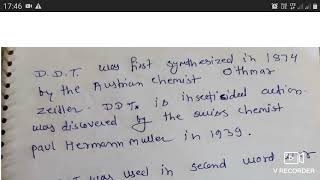 17:46
D.D.T. was first synthesized in 1874
by the Austrian chemist Othmar
zeidler. DDT. is insecticided action
was discovered by the swiss chemist
paul Hermann muller in 1939.
I was used in second word
V RECORDER